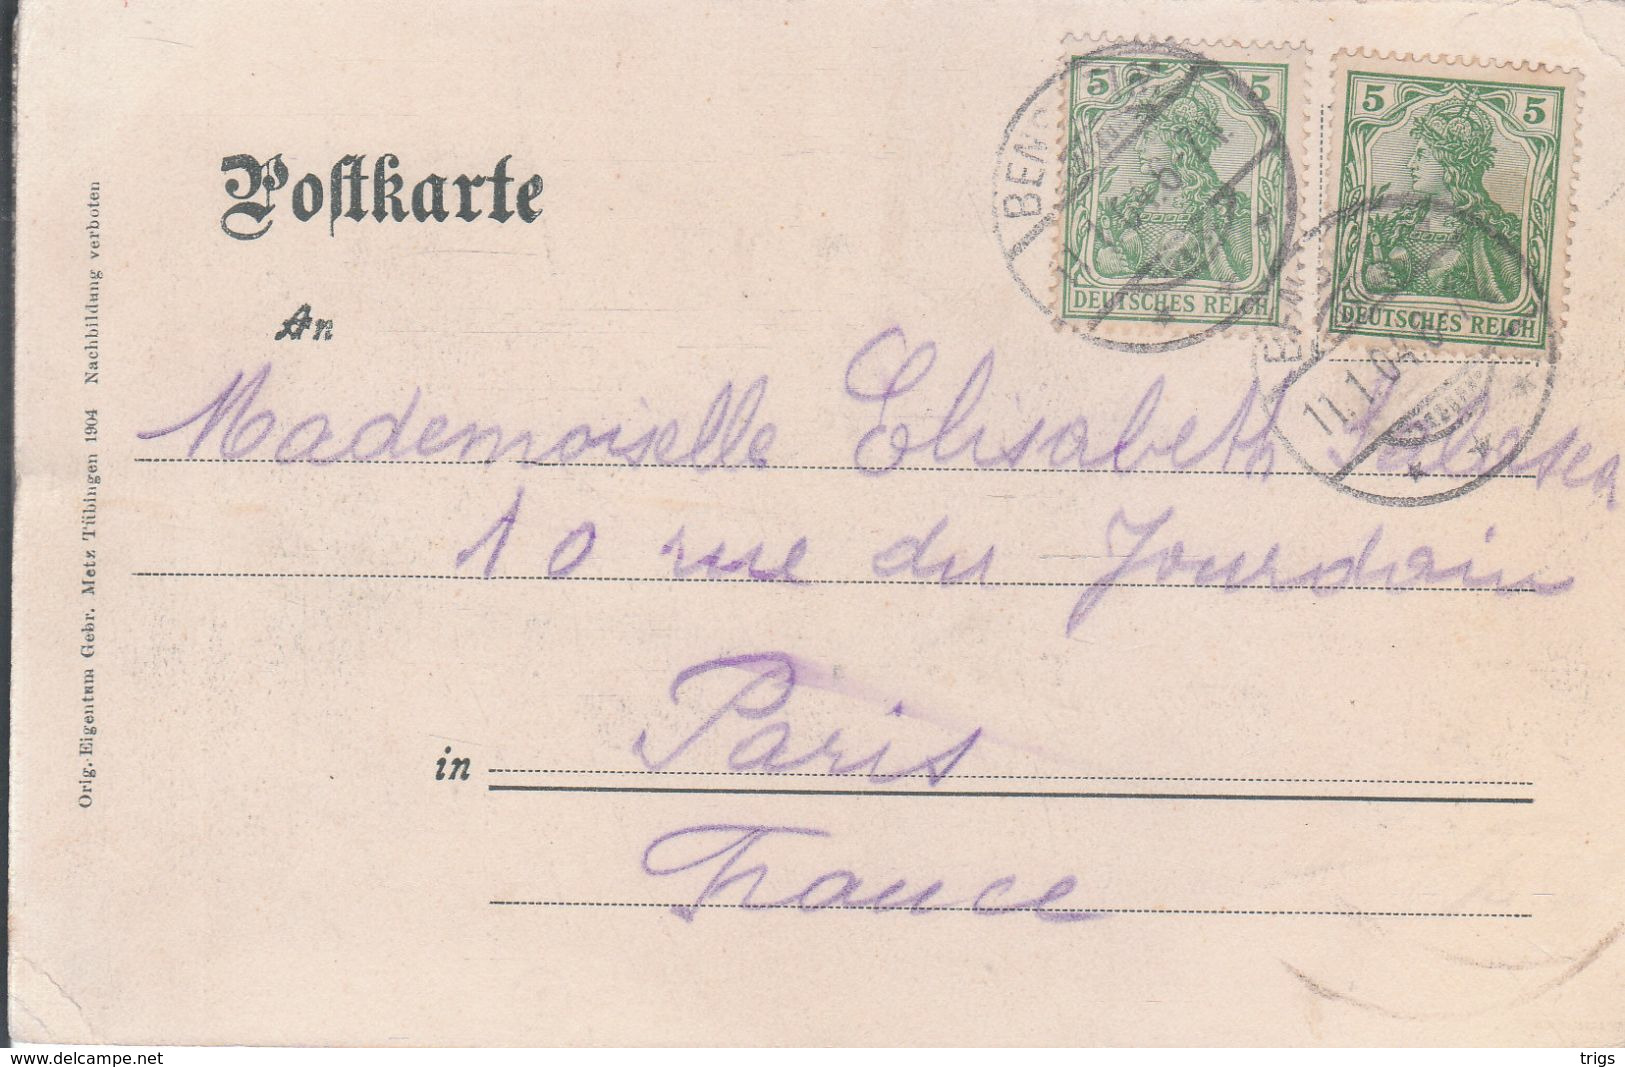 Postkarte
An
5 5
DEUTSCHES REICH
5 5
DEUTSCHES REICH
11.1.04
Mademoiselle Elisabeth
10 rue du Jourdain
in Paris
France
Orig.-Eigentum Gebr. Metz Tübingen 1904 Nachbildung verboten
www.delcampe.net
trigs